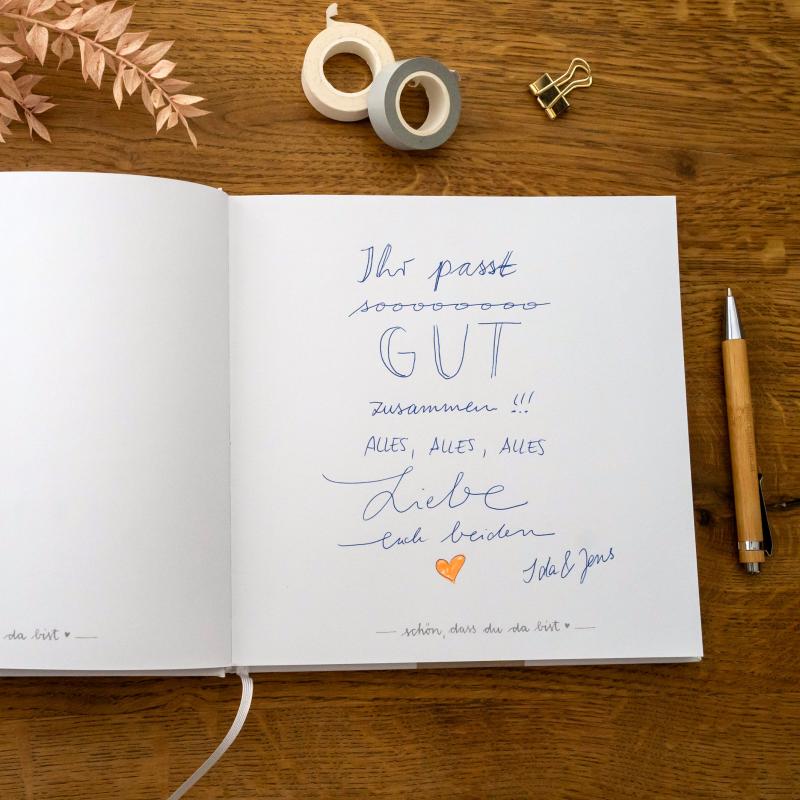 Ihr passt
sooooooooo
GUT
zusammen !!!
ALLES, ALLES, ALLES
Liebe
euch beiden
Ida & Jens
da bist ♥
schön, dass du da bist ♥